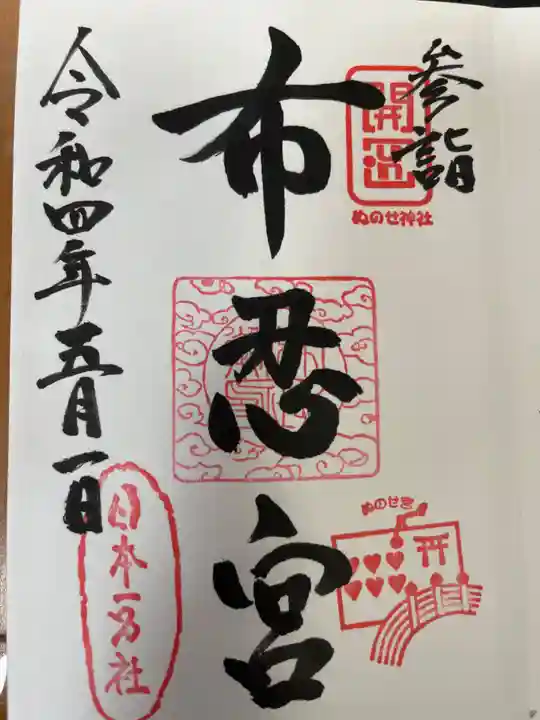 参詣
開運
ぬのせ神社
布忍宮
ぬのせ宮
令和四年五月一日
日本一社